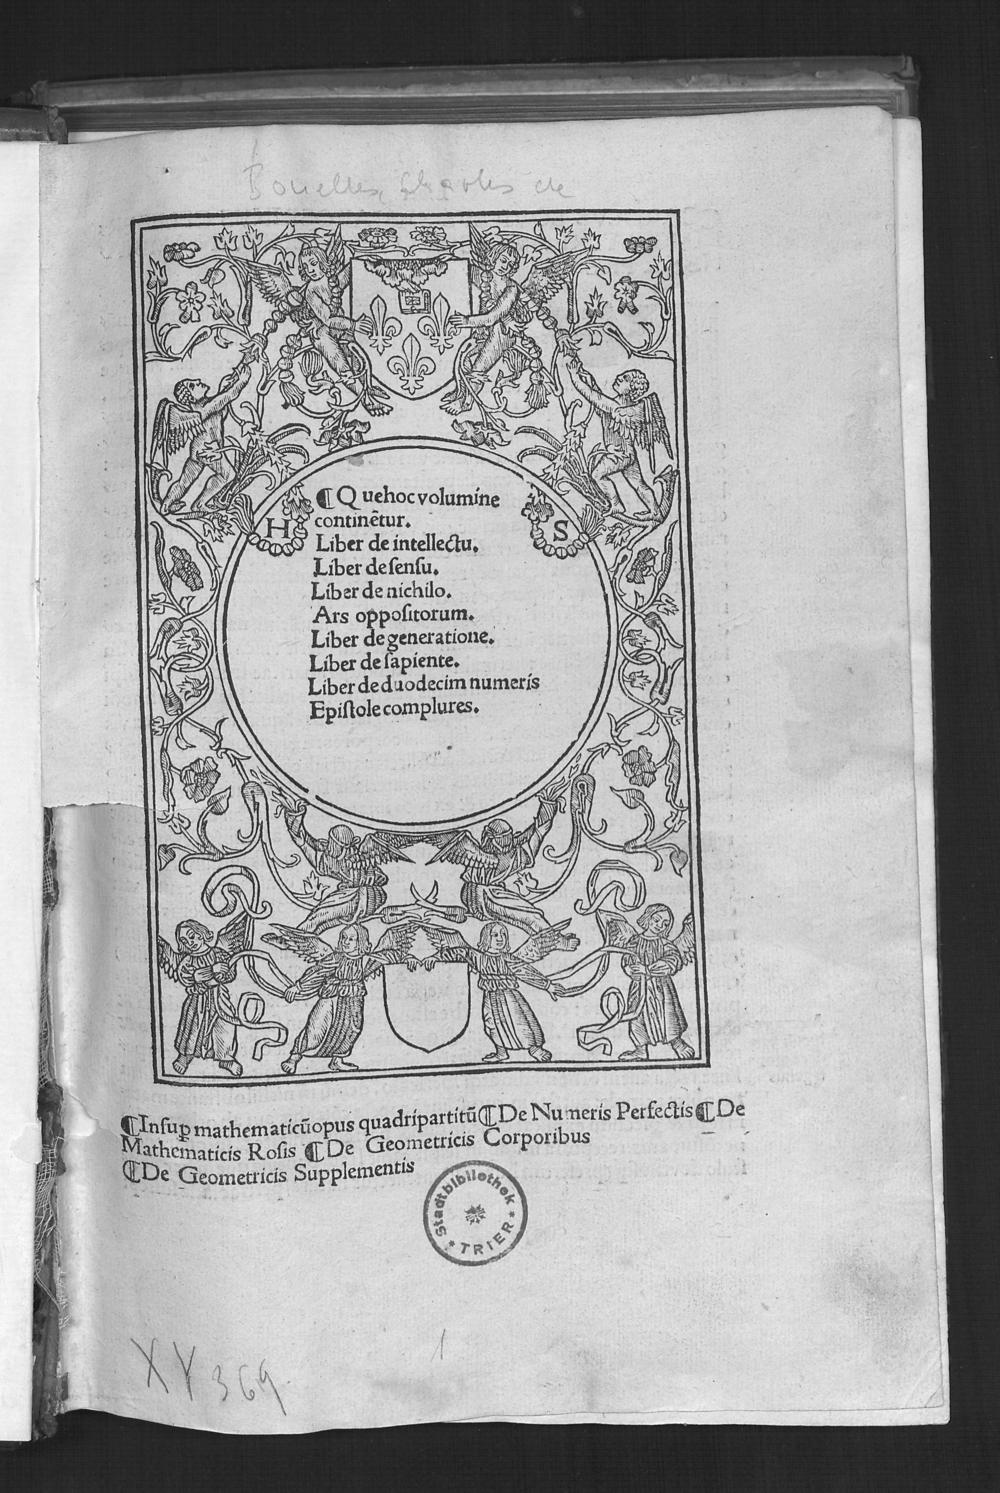 Bouelles, Charles de
¶ Que hoc volumine
continẽtur.
Liber de intellectu.
Liber de sensu.
Liber de nichilo.
Ars oppositorum.
Liber de generatione.
Liber de sapiente.
Liber de duodecim numeris
Epistole complures.
H
S
¶ Insuꝑ mathematicũ opus quadripartitũ ¶ De Numeris Perfectis ¶ De
Mathematicis Rosis ¶ De Geometricis Corporibus
¶ De Geometricis Supplementis
Stadtbibliothek
* TRIER *
1
XY 369